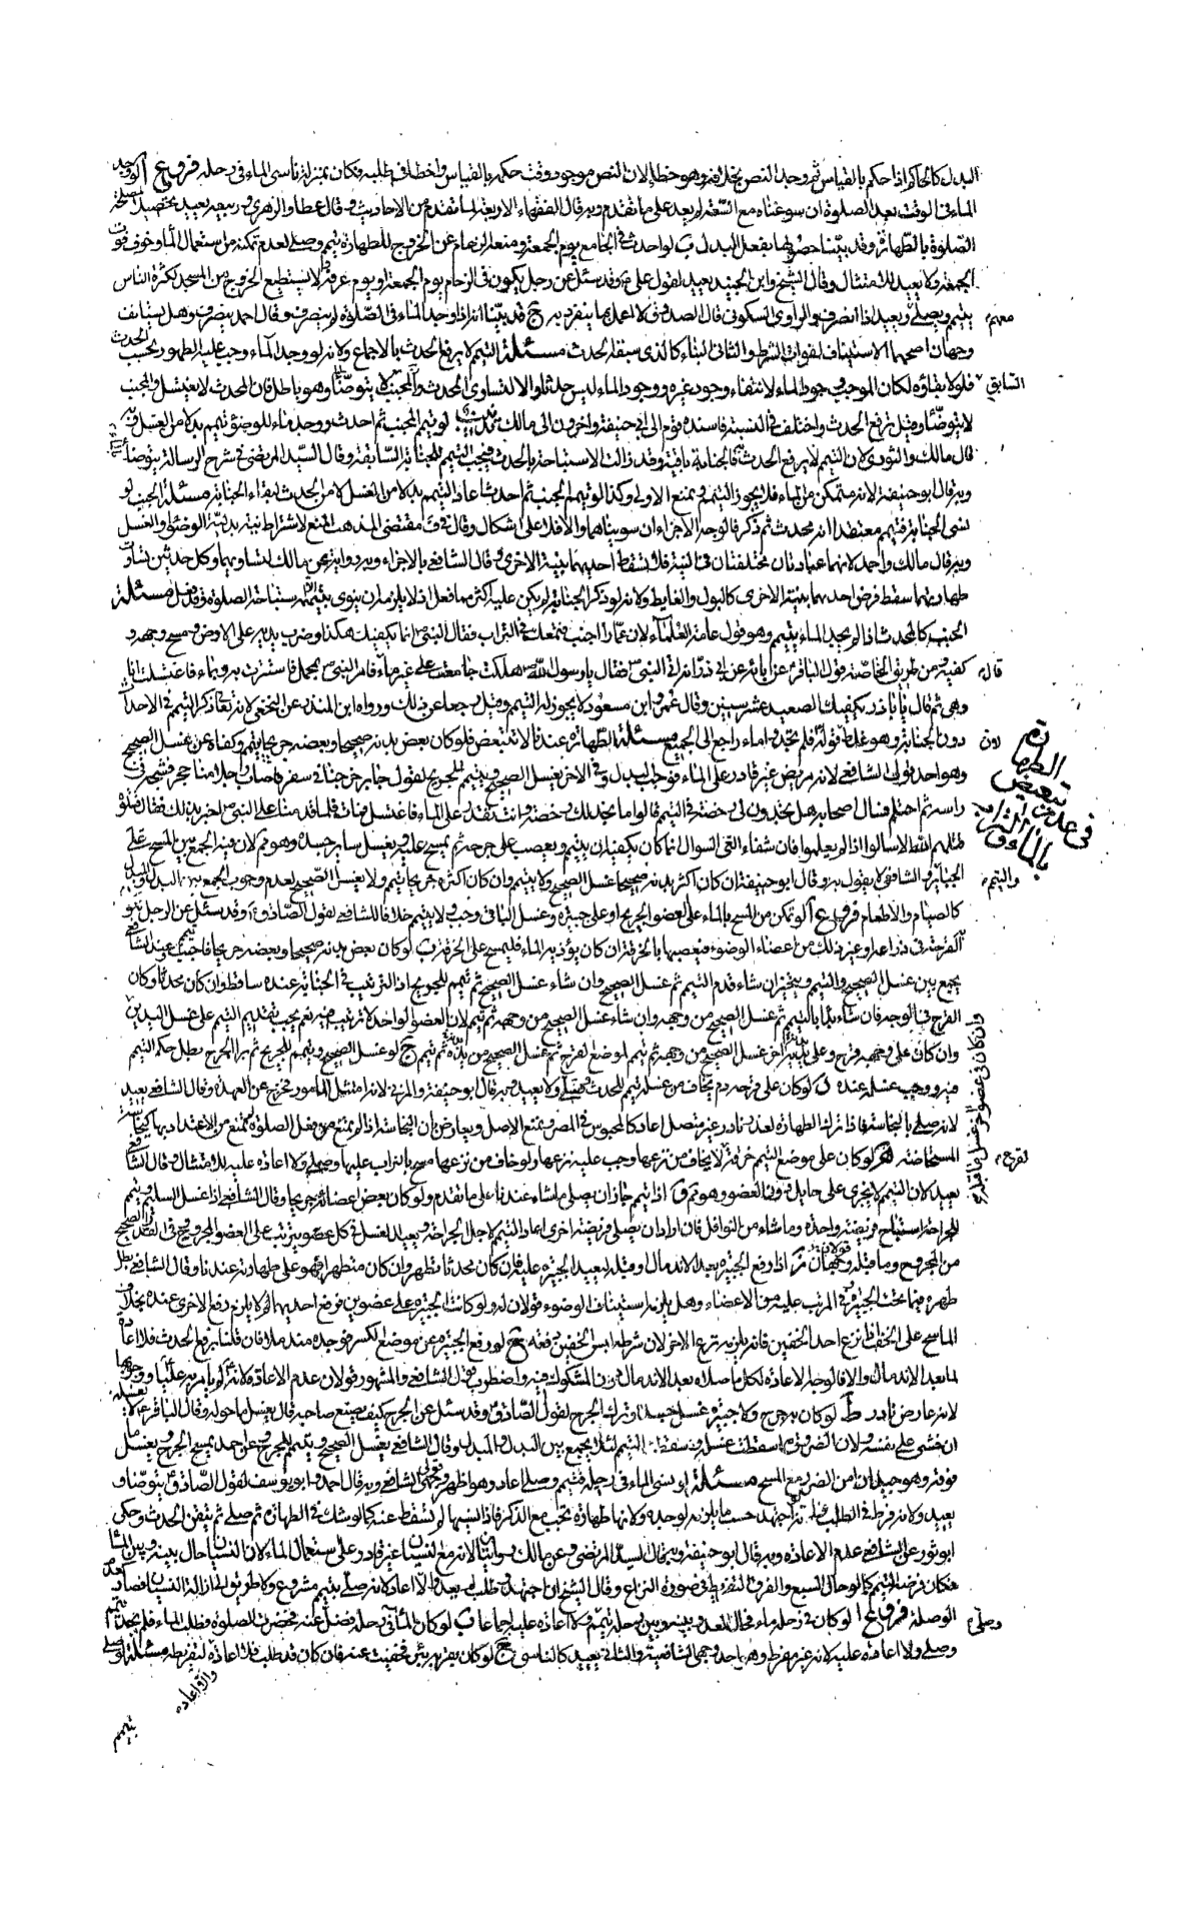 البدل كالحاكم اذا حكم بالقياس ثم وجد النص بخلافه وهو خطأ لان النص موجود وقت حكمه بالقياس واخطأ في طلبه فكان بمنزلة ناسي الماء في رحله فروع آ لو وجد
الماء في الوقت بعد الصلوة ان سوغناه مع السعة لم يعد على ما تقدم وبه قال الفقهاء الاربعة لما تقدم من الاحاديث وقال عطا والزهري وربيعة يعيد بتحصيل مصلحة
الصلوة بالطهارة وقد بينا حصولها بفعل البدل ب لو احدث في الجامع يوم الجمعة ومنعه الزحام عن الخروج للطهارة تيمم وصلى لعدم تمكنه من استعمال الماء وخوف فوت
الجمعة ولا يعيد للامتثال وقال الشيخ وابن الجنيد يعيد لقول علي وقد سئل عن رجل يكون في الزحام يوم الجمعة ويوم عرفة لا يستطيع الخروج من المسجد لكثرة الناس
يتيمم ويصلي ويعيد اذا انصرف والراوي السكوني قال الصدوق لا اعمل بما ينفرد به ج قد بينا انه اذا وجد الماء في الصلوة لم ينصرف وقال احمد ينصرف وهل يستانف
وجهان اصحهما الاستيناف لفوات الشرط والثاني البناء كالذي سبقه الحدث مسئلة التيمم لا يرفع الحدث بالاجماع ولانه لو وجد الماء وجب عليه الطهور بحسب الحدث
السابق فلولا بقاؤه لكان الموجب وجود الماء لانتفاء وجود غيره ووجود الماء ليس حدثا والا لتساوى المحدث والمجنب وهو باطل فان المحدث لا يغتسل والمجنب
لا يتوضا وقيل يرفع الحدث واختلف في النسبة فاسنده قوم الى ابي حنيفة واخرون الى مالك تذنيب لو تيمم المجنب ثم احدث ووجد ماء للوضوء تيمم بدلا من الغسل وبه
قال مالك والثوري لان التيمم لا يرفع الحدث فالجنابة باقية وقد زالت الاستباحة بالحدث فيجب التيمم للجنابة السابقة وقال السيد المرتضى في شرح الرسالة يتوضا
وبه قال ابو حنيفة لانه متمكن من الماء فلا يجوز التيمم ونمنع الاولى وكذا لو تيمم المجنب ثم احدث اعاد التيمم بدلا من الغسل لا من الحدث لبقاء الجنابة مسئلة الجنب لو
نسي الجنابة فتيمم معتقدا انه محدث ثم ذكر فالوجه الاجزاء ان سوينا هما والا فلا على اشكال وقال في ف مقتضى المذهب المنع لاشتراط نية بدلية الوضوء او الغسل
وبه قال مالك واحمد لانهما عبادتان مختلفتان في النية فلا تسقط احديهما بنية الاخرى وقال الشافعي بالاجزاء وبه رواية عن مالك لتساويهما وكل حدثين تساوت
طهارتهما سقط فرض احدهما بنية الاخرى كالبول والغايط ولانه لو ذكر الجنابة لم يكن عليه اكثر مما فعل اذ لا يلزمه ان ينوي بتيممه استباحة الصلوة وقد فعل مسئلة
الجنب كالمحدث اذا لم يجد الماء يتيمم وهو قول عامة العلماء لان عمارا اجنب فتمعك في التراب فقال النبي انما يكفيك هكذا وضرب بيديه على الارض ومسح وجهه و
كفيه ومن طريق الخاصة قول الباقر عن ابائه عن ابي ذر انه اتى النبي فقال يا رسول الله هلكت جامعت على غير ماء فامر النبي بمحمل فاستترت به وبماء فاغتسلت انا
وهي ثم قال يا باذر يكفيك الصعيد عشر سنين وقال عمر وابن مسعود لا يجوز له التيمم وقيل رجعا عن ذلك ورواه ابن المنذر عن النخعي لانه تعالى ذكر التيمم في الاحداث
دون الجنابة وهو غلط فقوله فلم تجدوا ماء راجع الى الجميع مسئلة الطهارة عندنا لا تتبعض فلو كان بعض بدنه صحيحا وبعضه جريحا تيمم وكفاه عن غسل الصحيح
وهو احد قولي الشافعي لانه مريض غير قادر على الماء فوجب البدل وفي الاخر يغسل الصحيح ويتيمم للجريح لقول جابر خرجنا في سفر فاصاب رجلا منا حجر فشجه في
راسه ثم احتلم فسال اصحابه هل تجدون لي رخصة في التيمم قالوا ما نجد لك رخصة وانت تقدر على الماء فاغتسل فمات فلما قدمنا على النبي اخبر بذلك فقال قتلوه
قتلهم الله الا سالوا اذ لم يعلموا فان شفاء العي السوال انما كان يكفيه ان يتيمم ويعصب على جرحه ثم يمسح عليه ويغسل ساير جسده وهو قم لان فيه الجمع بين المسح على
الجبائر والشافعي لا يقول به وقال ابو حنيفة ان كان اكثر بدنه صحيحا غسل الصحيح ولا يتيمم وان كان اكثره جريحا تيمم ولا يغسل الصحيح لعدم وجوب الجمع بين البدل والمبدل
كالصيام والاطعام فروع آ لو تمكن من المسح بالماء على العضو الجريح او على جبيرة وغسل الباقي وجب ولا يتيمم خلافا للشافعي لقول الصادق وقد سئل عن الرجل به
القرحة في ذراعه او غير ذلك من اعضاء الوضوء فيعصبها بالخرقة ان كان يؤذيه الماء فليمسح على الخرقة ب لو كان بعض بدنه صحيحا وبعضه جريحا فاجنب تيمم عند الشافعي
يجمع بين غسل الصحيح والتيمم ويتخير ان شاء قدم التيمم ثم غسل الصحيح وان شاء غسل الصحيح ثم تيمم للجريح اذ الترتيب في الجنابة عنده ساقط وان كان محدثا وكان
القرح في الوجه فان شاء بدأ بالتيمم ثم غسل الصحيح من وجهه وان شاء غسل الصحيح من وجهه ثم تيمم لان العضو الواحد لا ترتيب فيه نعم يجب تقديم التيمم على غسل اليدين
وان كان على وجهه قرح وعلى يديه اخر غسل الصحيح من وجهه ثم تيمم لموضع القرح ثم غسل الصحيح من يديه ثم تيمم ج لو غسل الصحيح وتيمم للجريح ثم برأ الجرح بطل حكم التيمم
فيه ووجب غسله عنده د لو كان على قرحه دم يخاف من غسله تيمم للحدث وصلى ولا يعيد وبه قال ابو حنيفة والمزني لانه امتثل المامور فخرج عن العهدة وقال الشافعي يعيد
لانه صلى بالنجاسة فاذا ترك الطهارة لعذر نادر غير متصل اعاد كالمحبوس في المصر ونمنع الاصل ويعارض بان النجاسة اذا لم تمنع من فعل الصلوة لم تمنع من الاعتداد بها كنجاسة
المستحاضة ه لو كان على موضع التيمم خرقة لا يخاف من نزعها وجب عليه نزعها ولو خاف من نزعها مسح بالتراب عليها وصلى ولا اعادة عليه للامتثال وقال الشافعي
يعيد لان التيمم لا يجزي على حايل دون العضو وهو قم و اذا تيمم جاز ان يصلي ما شاء عندنا على ما تقدم ولو كان بعض اعضائه جريحا وقال الشافعي اذا غسل السليم وتيمم
للجراحة استباح فريضة واحدة وما شاء من النوافل فان اراد ان يصلي فريضة اخرى اعاد التيمم لاجل الجراحة ويعيد الغسل في كل عضو يترتب على العضو المجروح في
من المجروح وما قبله وجهان ز اذا رفع الجبيرة بعد الاندمال وقبله ليعيد الجبيرة عليه فان كان محدثا تطهر وان كان متطهرا فهو على طهارته عندنا وقال الشافعي بطل
طهره فيما تحت الجبيرة وفي المرتب عليه من الاعضاء وهل يلزمه استيناف الوضوء قولان له ولو كانت الجبيرة على عضوين فرفع احديهما لم يلزمه رفع الاخرى عنده بخلاف
الماسح على الخف اذا نزع احد الخفين فانه يلزمه نزع الاخر لان شرطه لبس الخفين دفعة ح لو رفع الجبيرة عن موضع الكسر فوجده مندملا فان قلنا يرفع الحدث فلا اعادة
لما بعد الاندمال والا فالوجه الاعادة لكل ما صلاه بعد الاندمال دون المشكوك فيه واضطرب قول الشافعي والمشهور قولان عدم الاعادة لانه لم يامر به عليا ووجوبها
لانه عارض نادر ط لو كان به جرح ولا جبيرة غسل جسده وترك الجرح لقول الصادق وقد سئل عن الجرح كيف يصنع صاحبه قال يغسل ما حوله وقال الباقر لا يغسله
ان خشي على نفسه ولان الضرورة اسقطت غسله فسقط التيمم لئلا يجمع بين البدل والمبدل وقال الشافعي يغسل الصحيح ويتيمم للجرح وعن احمد يمسح الجرح ويغسل ما
فوقه وهو جيد ان امن الضرر مع المسح مسئلة لو نسي الماء في رحله فتيمم وصلى اعاد وهو اظهر قولي الشافعي وبه قال احمد وابو يوسف لقول الصادق يتوضا و
يعيد ولانه فرط في الطلب فانه لو اجتهد حسب ما يلزمه لوجده ولانها طهارة تجب مع الذكر فاذا نسيها لم تسقط عنه كما لو شك في الطهارة ثم صلى ثم تيقن الحدث وحكى
ابو ثور عن الشافعي عدم الاعادة وبه قال ابو حنيفة وبه قال السيد المرتضى وعن مالك روايتان لانه مع النسيان غير قادر على استعمال الماء لان النسيان حال بينه وبين الماء
فكان فرضه التيمم كما لو حال السبع والفرق التفريط في صورة النزاع وقال الشيخ ان اجتهد وطلب لم يعد والا اعاد لانه صلى بتيمم مشروع ولا طريق الى ازالة النسيان فصار كعدم
الوصلة فروع آ لو كان في رحله ماء فحال العدو بينه وبين رحله تيمم وصلى ولا اعادة عليه اجماعا ب لو كان الماء في رحله فضل عنه فحضرت الصلوة وطلب الماء فلم يجده تيمم
وصلى ولا اعادة عليه لانه غير مفرط وهو احد وجهي الشافعية والثاني يعيد كالناسي ج لو كان بقربه بئر فخفيت عنه فان كان قد طلب فلا اعادة لتفريطه مسئلة لو صلى
والا اعاده
تيمم
في عدم تبعض الطهارة بالماء والتراب